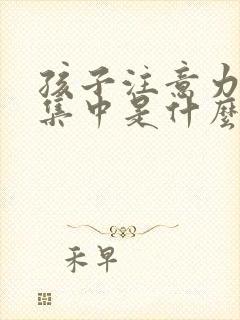 孩子注意力
集中是什麼
禾早